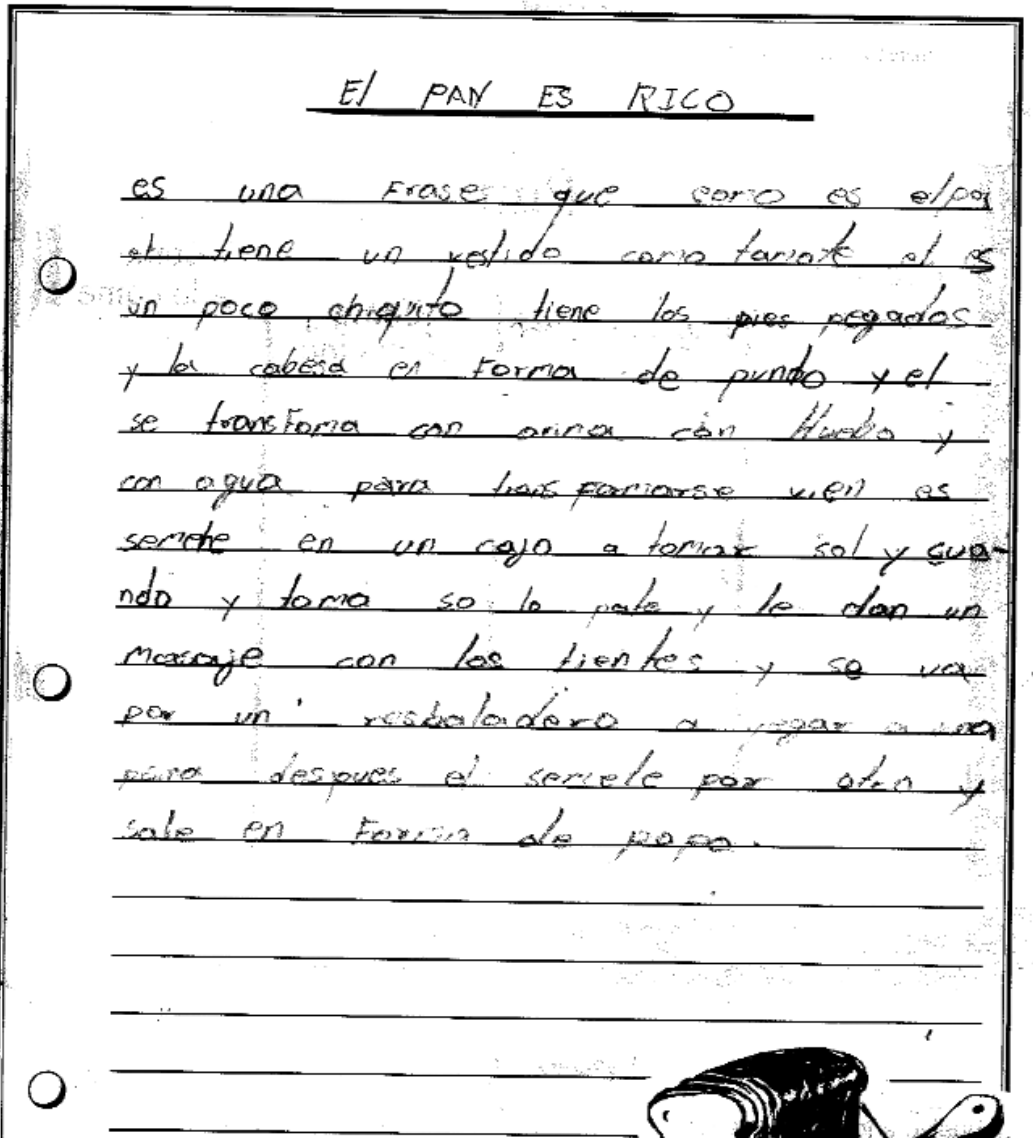 El PAN ES RICO
es una Frase que como es el pa
el tiene un vestido como tamate el es
un poco chiquito tiene los pies pegados
y la cabesa en Forma de pundo y el
se transForma con arina con Huebo y
con agua para transFormarse vien es
semete en un cajo a tomar sol y cua-
ndo y toma so lo y le dan un
masaje con los tientes y se va
por un resbaladero a yegar a una
despues el semete por otro y
sale en Forma de popo.